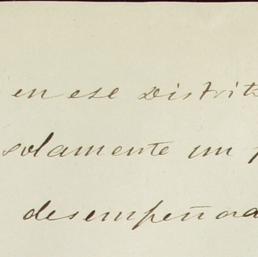 en ese Distrit
solamente un
desempeñada